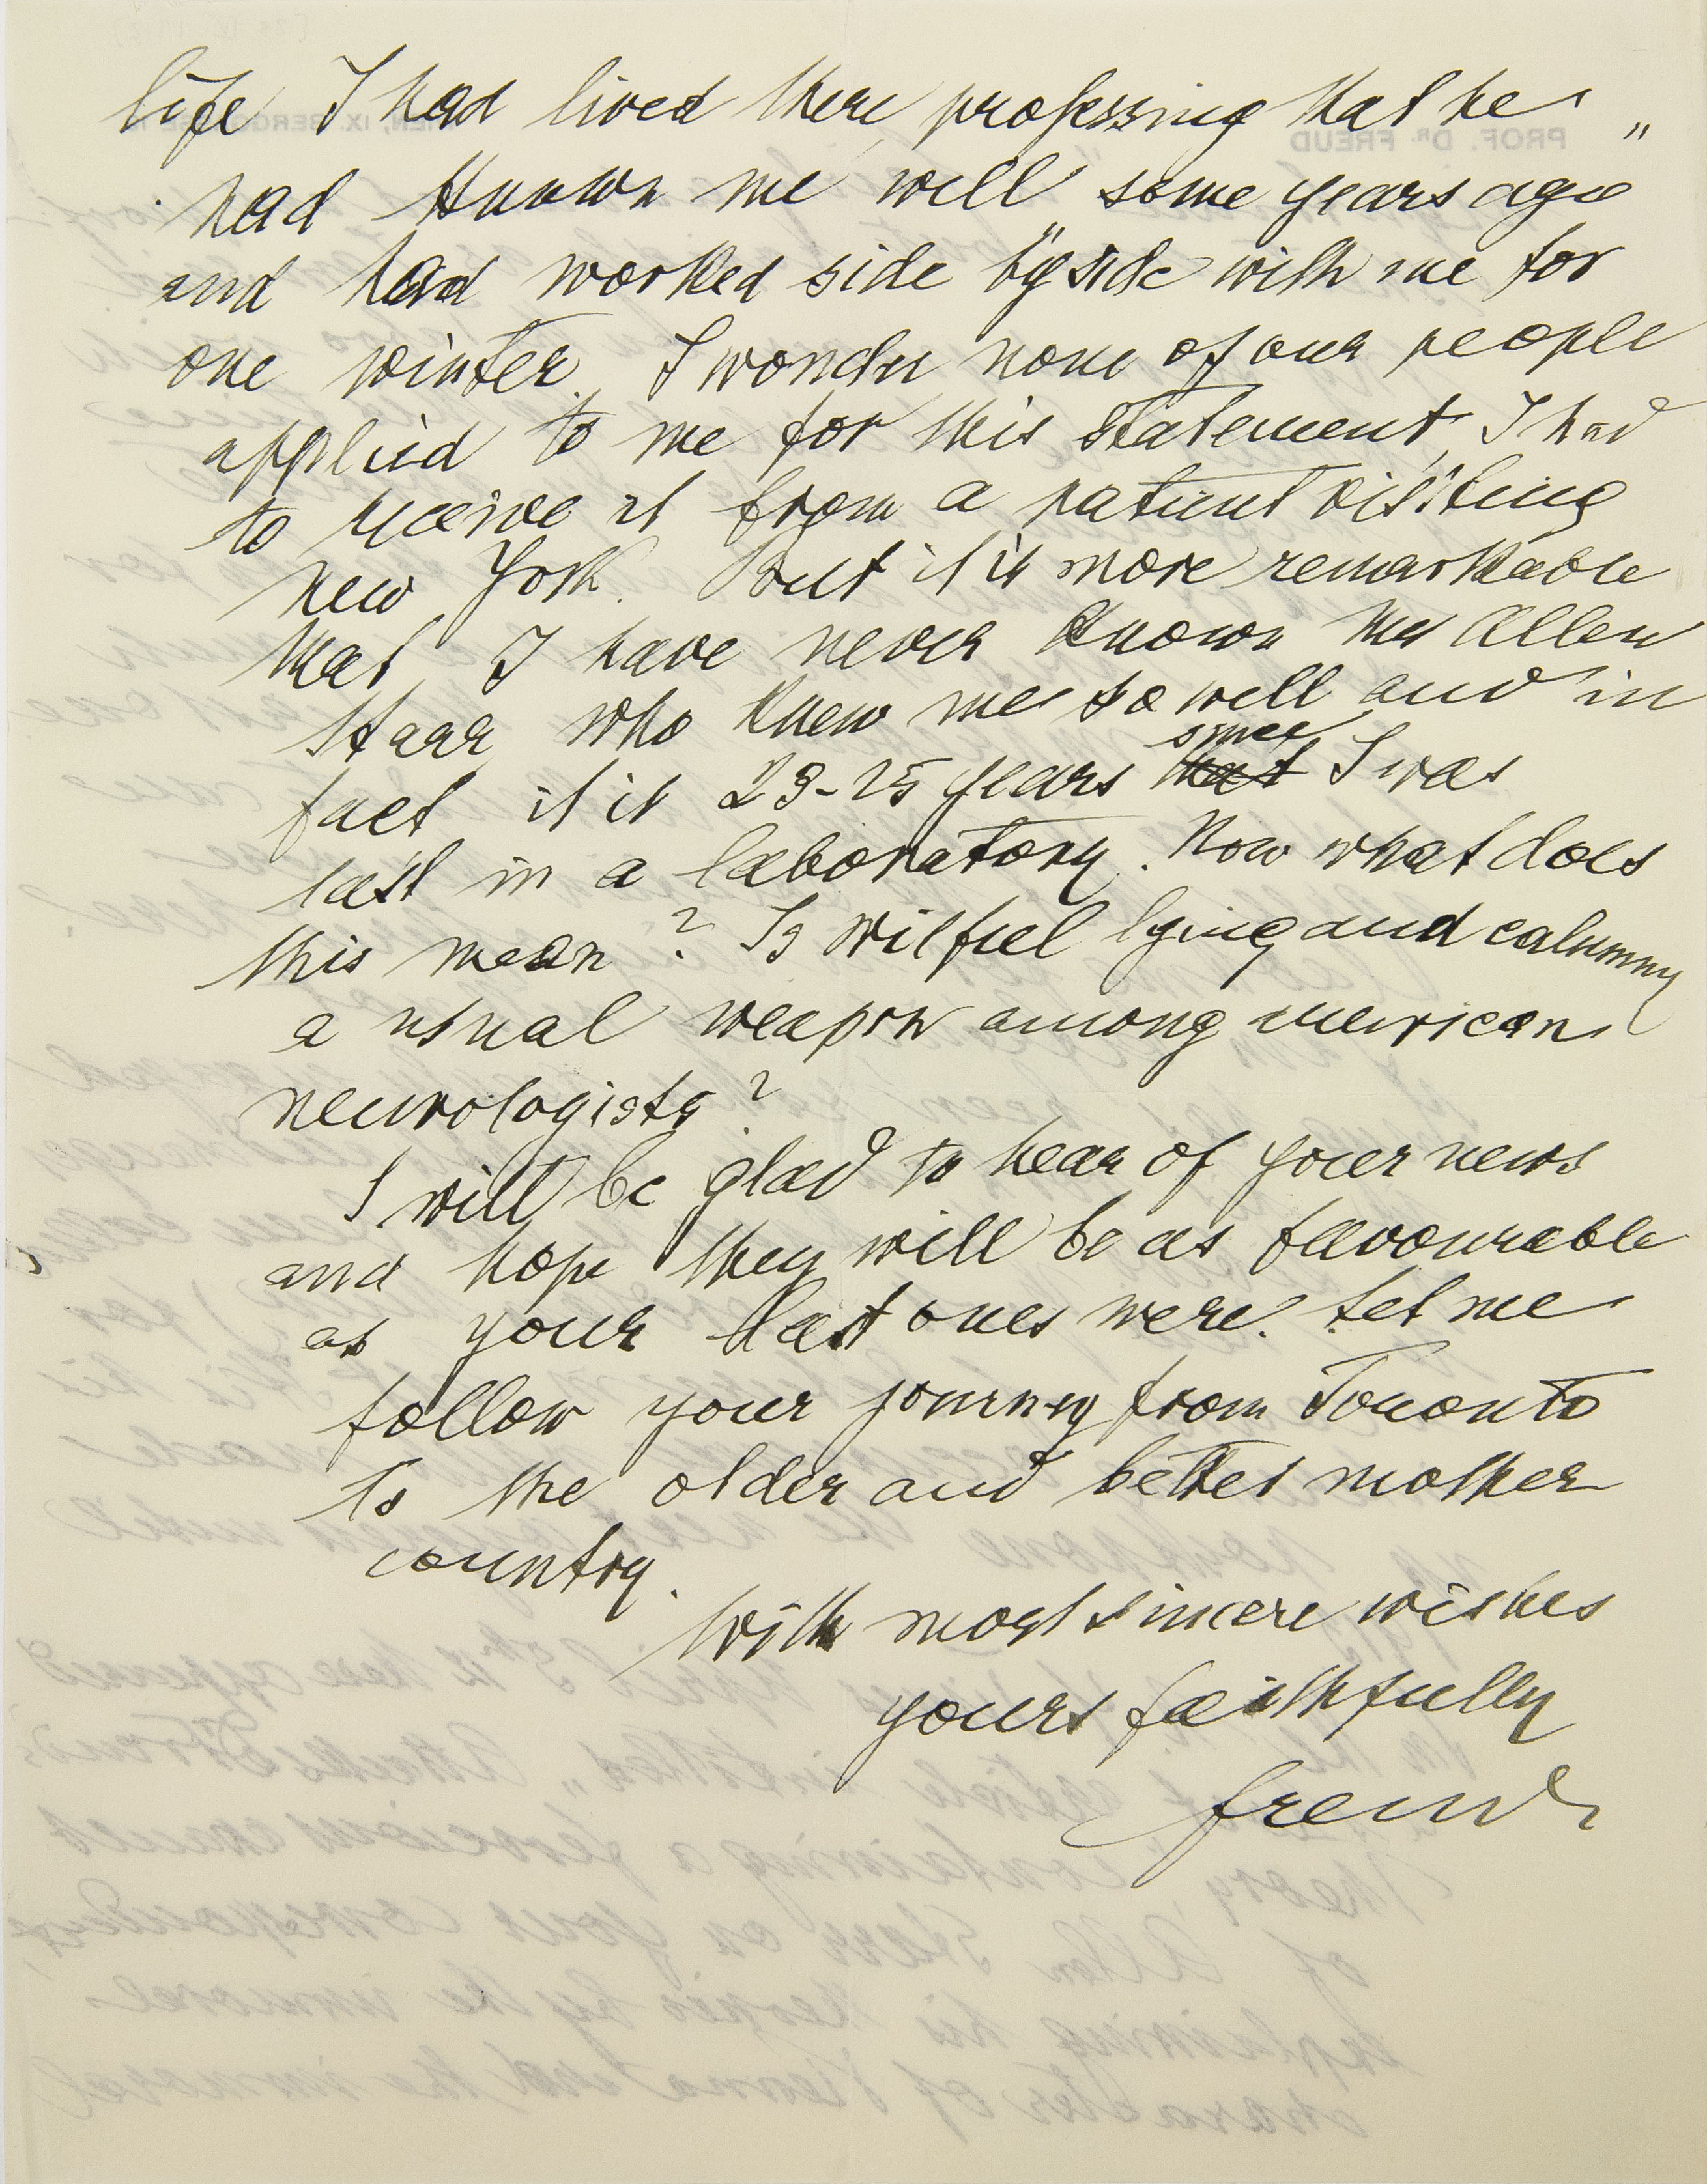 life I had lived there, professing that he „
had known me well some years ago
and had worked side by side" with me for
one winter. I wonder none of our people
applied to me for this statement, I had
to receive it from a patient visiting
New York. But it is more remarkable
that I have never known this Allen
Starr who knew me so well and in
since
fact it is 23-25 years that I was
last in a laboratory. Now what does
this mean? Is wilful lying and calumny
a usual weapon among american
neurologists?
I will be glad to hear of your news
and hope they will be as favourable
as your last ones were. Let me
follow your journey from Toronto
to the older and better mother
country.
With most sincere wishes
yours faithfully
Freud